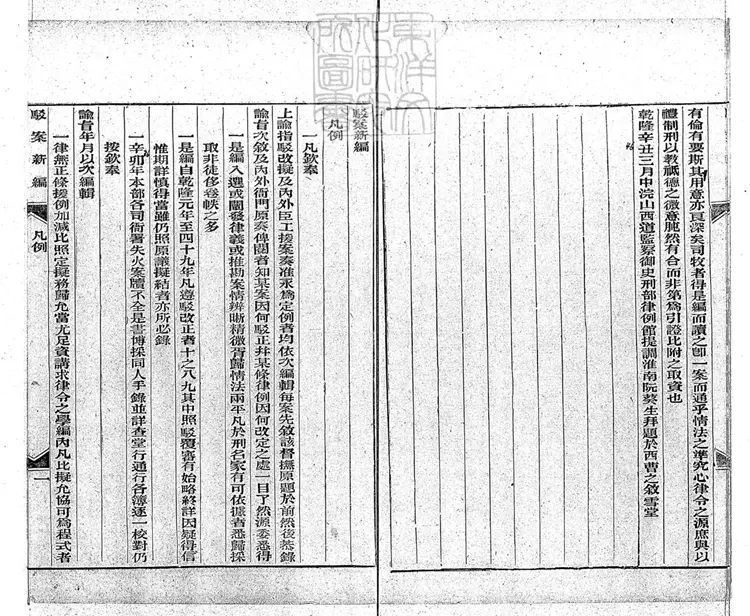 有倫有要斯其用意亦良深矣司牧者得是編而讀之即一案而通乎情法之準究心律令之源庶與以
禮制刑以教祗德之微意脗然有合而非第為引證比附之取資也
乾隆辛丑三月中浣山西道監察御史刑部律例館提調淮南阮葵生拜題於西曹之敘雪堂
駁案新編
凡例
一凡欽奉
上諭指駁改擬及內外臣工援案奏准永為定例者均依次編輯每案先敘該督撫原題於前然後恭錄
諭旨次敘及內外衙門原奏俾閱者知某案因何駁正幷某條律例因何改定之處一目了然源委悉得
一是編入選或闡發律義或推勘案情辨晰精微胥歸情法兩平凡於刑名家有可依據者悉歸採
取非徒侈卷帙之多
一是編自乾隆元年至四十九年凡遵駁改正者十之八九其中照駁覆審有始略終詳因疑得信
惟期詳慎得當雖仍照原讞擬結者亦所必錄
一辛卯年本部各司衙署失火案牘不全是書博採同人手錄並詳查堂行通行各簿逐一校對仍
按欽奉
諭旨年月以次編輯
一律無正條援例加減比照定擬務歸允當尤足資講求律令之學編內凡比擬允協可為程式者
駁案新編
凡例
一
東洋文化研究所圖書